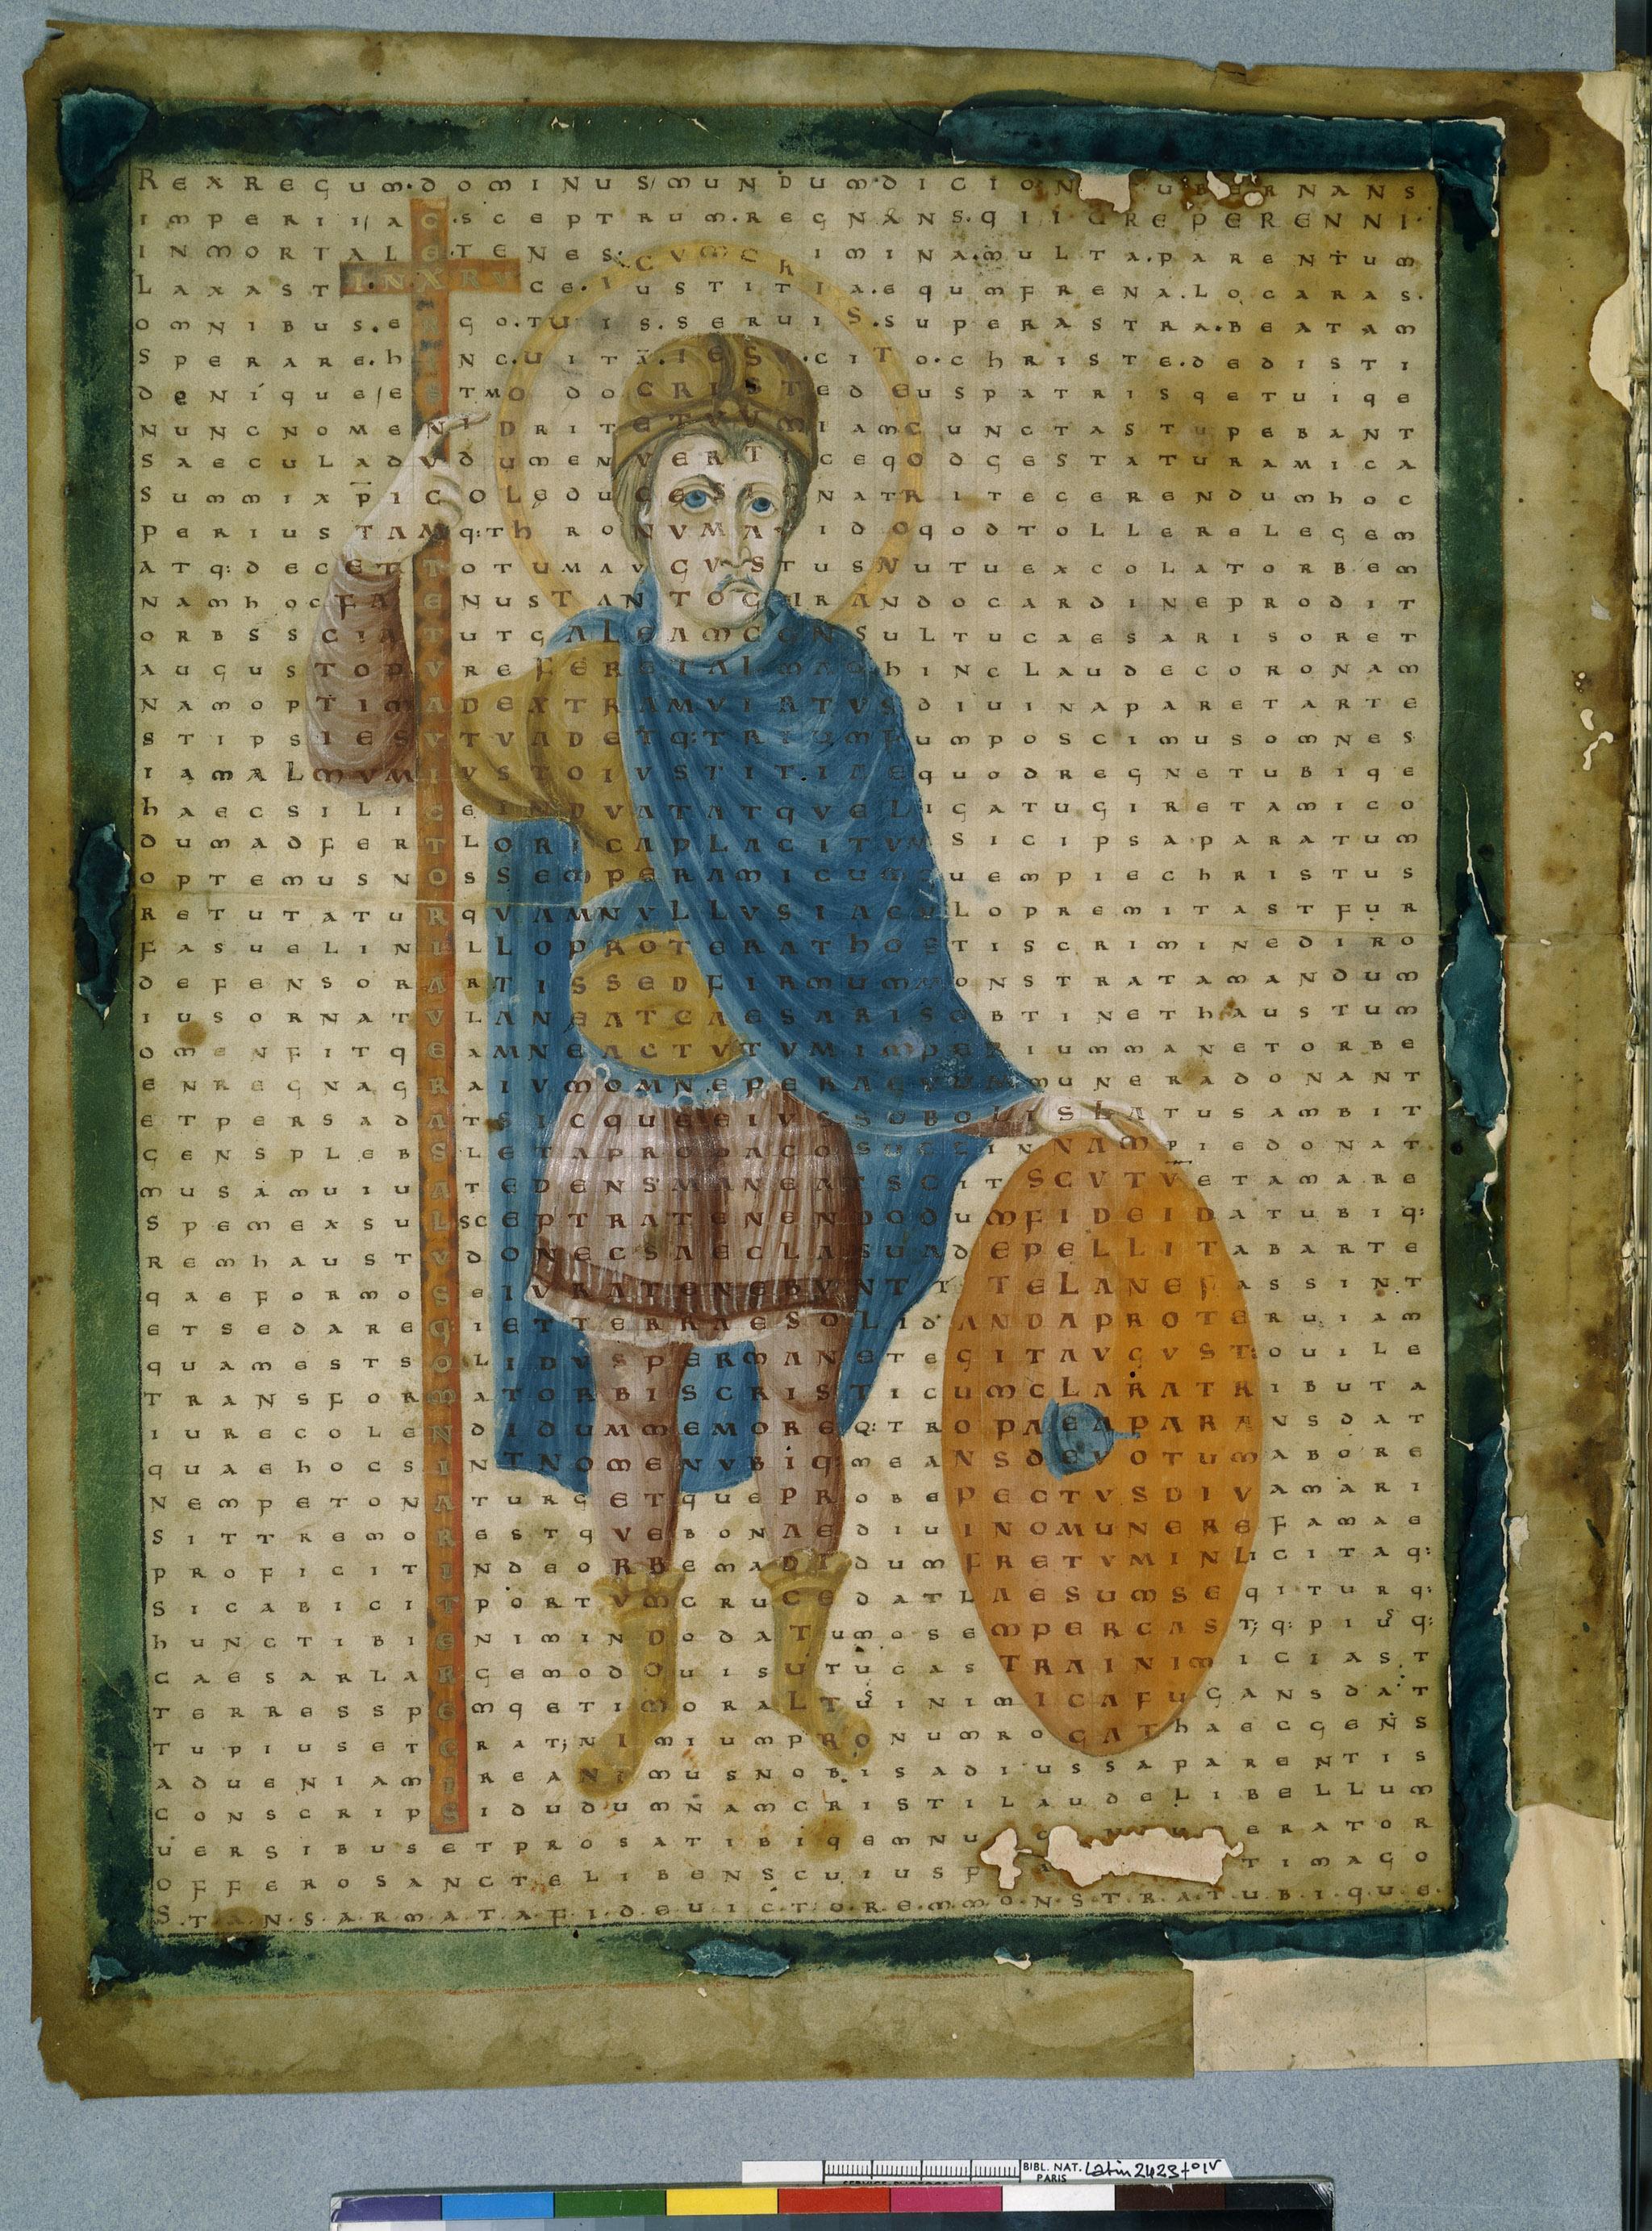 REXREGUM·DOMINUSMUNDUM·DICION UBERNANS
IMPERII/AC·SCEPTRUM·REGNANS·QIIUREPERENNI·
INMORTALE·TENES:CVMCHIMINA·MULTA·PARENTUM
LAXASTI·N·XRVCE·IUSTITIA·EQUMFRENA·LOCARAS·
OMNIBUS·E GO·TUIS·SERUIS·SUPERASTRA·BEATAM
SPERARE·H NC·UITĀ·IESV·CITO·CHRISTE·DEDISTI
DENIQUE/ESTMODOCRISTEDEUSPATRISQETUIQE
NUNCNOMENIDRITETVVMIAMCUNCTASTUPEBANT
SAECULADVDUMENVERTICEQODGESTATURAMICA
SUMMIXPICOLEDUCESIGNATRITECERENDUMHOC
PERIUSTAMQ:THRONVMAIDOQODTOLLERELEGEM
ATQ:DECETTOTUMAVGVSTUSNUTUEXCOLATORBEM
NAMHOCFAENUSTANTOGIRANDOCARDINEPRODIT
ORBSSCIATUTGALEAMCONSULTUCAESARISORET
AUGUSTOPVREFERETALMAEHINCLAUDECORONAM
NAMOPTIMADEXTRAMVIRTVSDIUINAPARETARTE
STIPSIESVTVADETQ:TRIUMFUMPOSCIMUSOMNES
IAMALMVMIVSTOIVSTITIAEQUODREGNETUBIQE
HAECSILICEINDVATATQVELIGATUGIRETAMICO
DUMADFERTLORICAPLACITVMSICIPSAPARATUM
OPTEMUSNOSSEMPERAMICUMQUEMPIECHRISTUS
RETUTATURQVAMNVLLVSIACULOPREMITASTFUR
FASUELINULLOPROTERATHOSTISCRIMINEDIRO
DEFENSORARTISSEDFIRMUMMONSTRATAMANDUM
IUSORNATVLANEATCAESARISOBTINETHAUSTUM
OMENFITQEAMNEACTVTVMIMPERIUMMANETORBE
ENREGNAGRAIVMOMNEPERAEVUMMUNERADONANT
ETPERSADATSICQUEEIVSSOBOLISLATUSAMBIT
GENSPLEBSLETAPROPACOSUCLINNAMPIEDONAT
MUSAMUIUATEDENSMANEATSCITSCVTVETAMARE
SPEMEXSULSCEPTRATENENDODUMFIDEIDATUBIQ:
REMHAUSTVDONECSAECLASUADEPELLITABARTE
QAEFORMOSEIVRATENEBVNTITELANEFASSINT
ETSEDAREQ:IETTERRAESOLIDANDAPROTERUIAM
QUAMESTSOLIDVSPERMANETEGITAVGVST:OUILE
TRANSFORMATORBISCRISTICUMCLARATRIBUTA
IURECOLENDIDUMMEMOREQ:TROPAEAPARANSDAT
QUAEHOCSINTNOMENVBIQ:MEANSDEVOTUMABORE
NEMPETONATURGETQUEPROBEPECTVSDIVAMARI
SITTREMORESTQVEBONAEDIUINOMUNEREFAMAE
PROFICITINDEORBEMADIDUMFRETVMINLICITAQ:
SICABICITPORTVMCRUCEDATLAESUMSEQITURQ:
HUNCTIBIENIMINDODATUMOSEMPERCAST;Q:PIUSQ:
CAESARLARGEMODOUISUTUCASTRAINIMICIAST
TERRESSPEMQETIMORALTUSINIMICAFUGANSDAT
TUPIUSETGRAT;NIMIUMPRONUMROGATHAECGENS
ADUENIAMIREANIMUSNOBISADIUSSAPARENTIS
CONSCRIPSIDUDUMNAMCRISTILAUDELIBELLUM
UERSIBUSETPROSATIBIQEMNU ERATOR
OFFEROSANCTELIBENSCUIUSP TIMAGO
STANSARMATAFIDEUICTOREMMONSTRATUBIQUE
BIBL. NAT. PARIS Latin 2423 fo IV